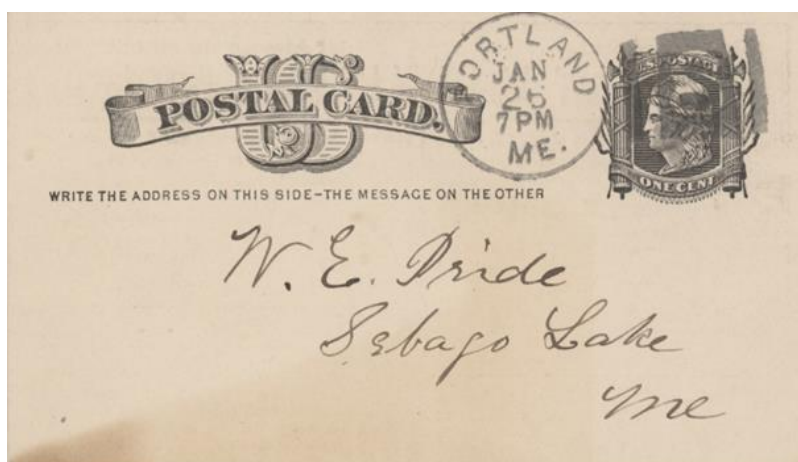 US
POSTAL CARD.
PORTLAND
JAN
26
7PM
ME.
U.S. POSTAGE
ONE CENT
WRITE THE ADDRESS ON THIS SIDE-THE MESSAGE ON THE OTHER
W. E. Pride
Sebago Lake
Me